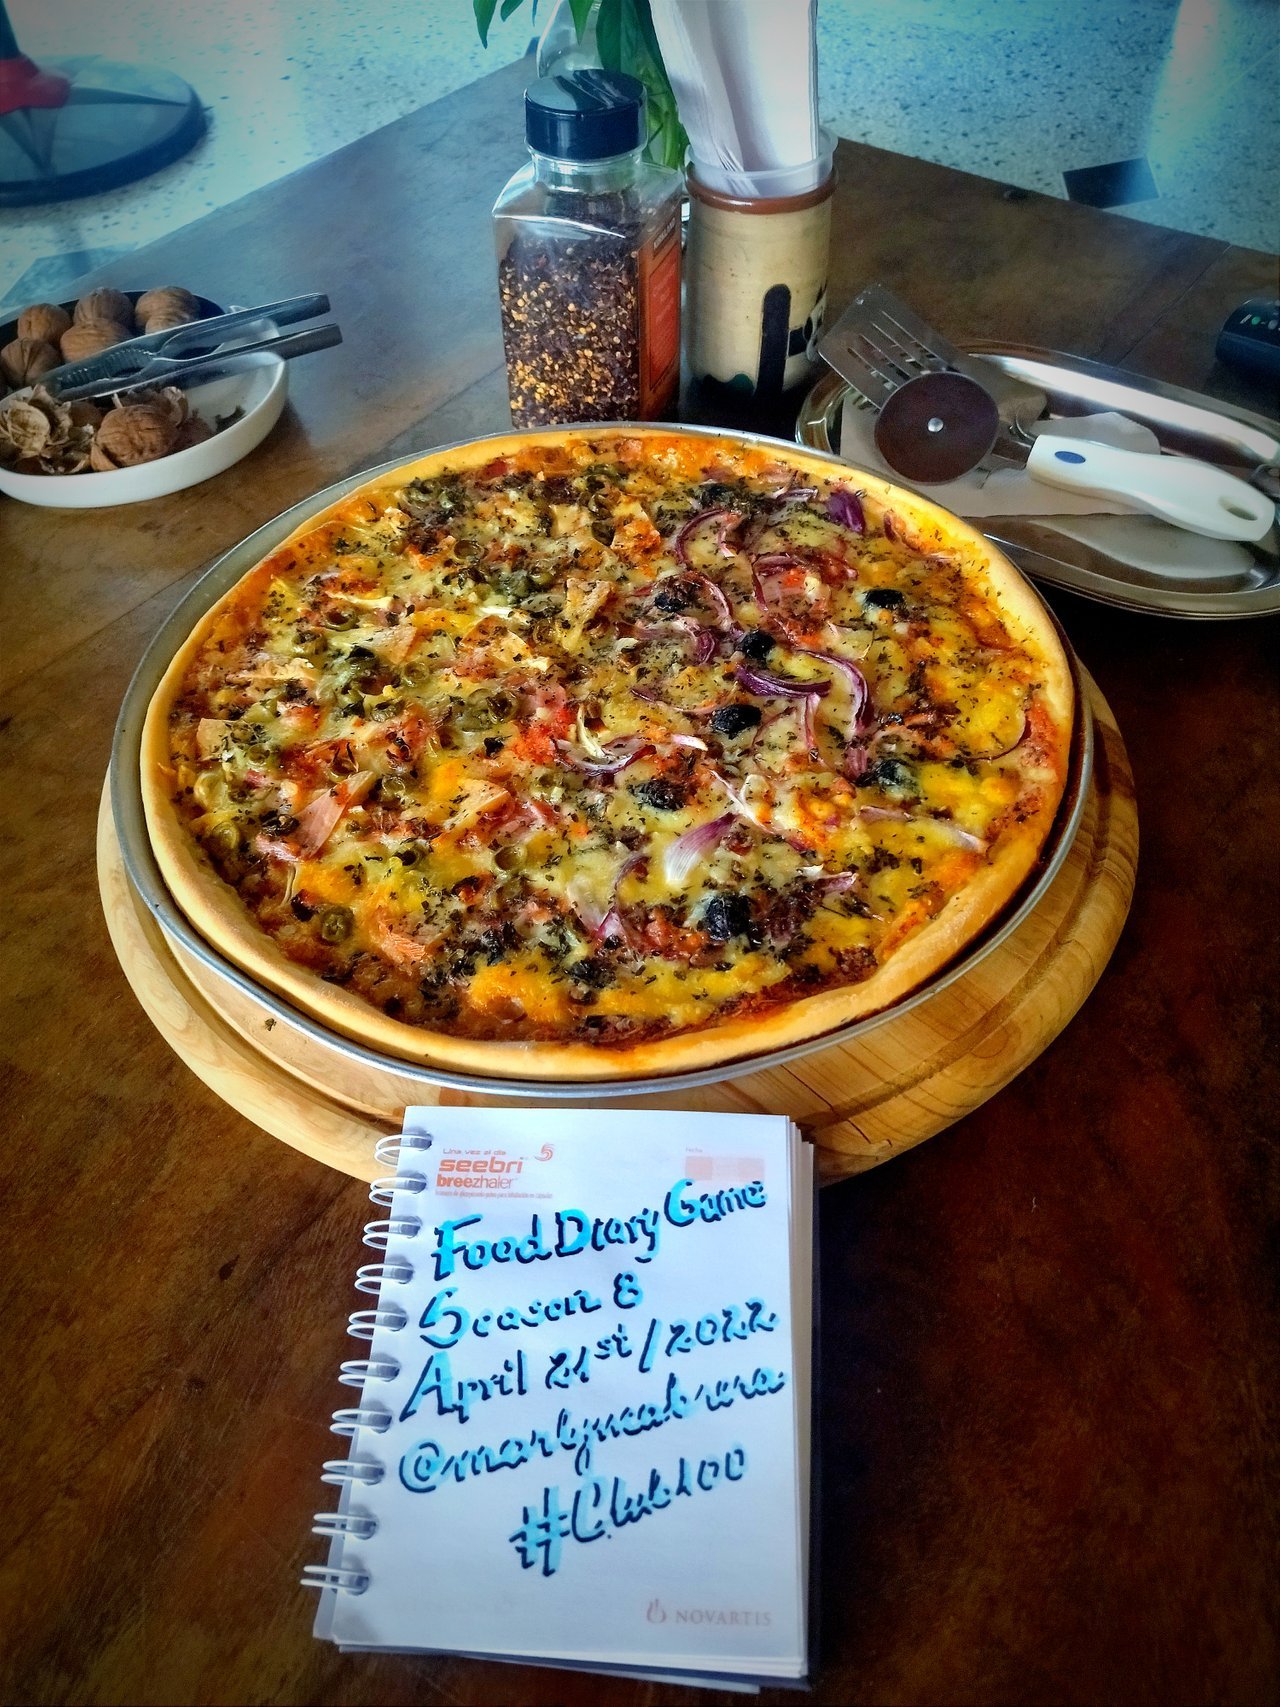 Una vez al día
seebri
breezhaler
Fecha
Food Diary Game
Season 8
April 21st/2022
@marlyncabrera
#Club100
NOVARTIS